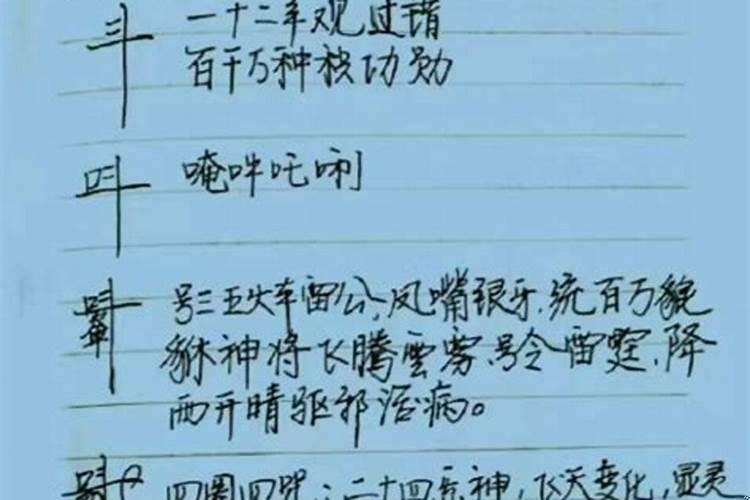 一十二年观过错
百千万种积功勋
唵吽吒唎
号三五火车雷公，凤嘴银牙，统百万貔
貅神将飞腾雲雾，号令雷霆，降
雨开晴驱邪治病。
四圈四咒：二十四兵神，飞天变化，显灵